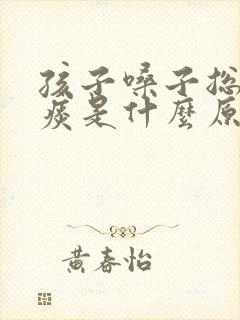 孩子嗓子总
痰是什麼原
黄春怡